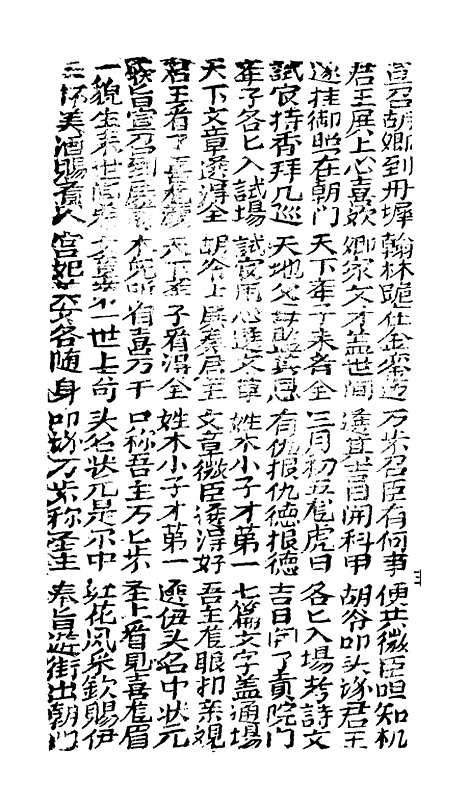 宣召胡卿到丹墀 翰林跪在金鑾边 万岁召臣有何事 便共微臣呾知机
君王展上心喜欢 卿家文才盖世間 選日開科甲 胡爷叩头遂君王
遂挂御照在朝門 天下举子来者全 三月初五隹虎日 各匕入場考詩文
試官持香拜几巡 天地父母监其恩 有仇报仇德报德 吉日開了貢院門
举子各匕入試場 試官用心選文章 姓木小子才第一 七篇文字盖通場
天下文章選得全 胡爷上殿奏君王 文章微臣選得好 吾王隹眼扣亲覌
君王看了喜 天下举子看得全 姓木小子才第一 選伊头名中状元
聖旨宣召到殿前 木兒听旨喜万千 口称吾主万匕岁 圣上看見喜隹眉
一貌生来世间 文章 一世上 头名状元是尔中 紅花凤采欽賜伊
三杯美酒賜 人 宫妃美女各随身 叩谢万岁称圣主 奉旨遊街出朝門